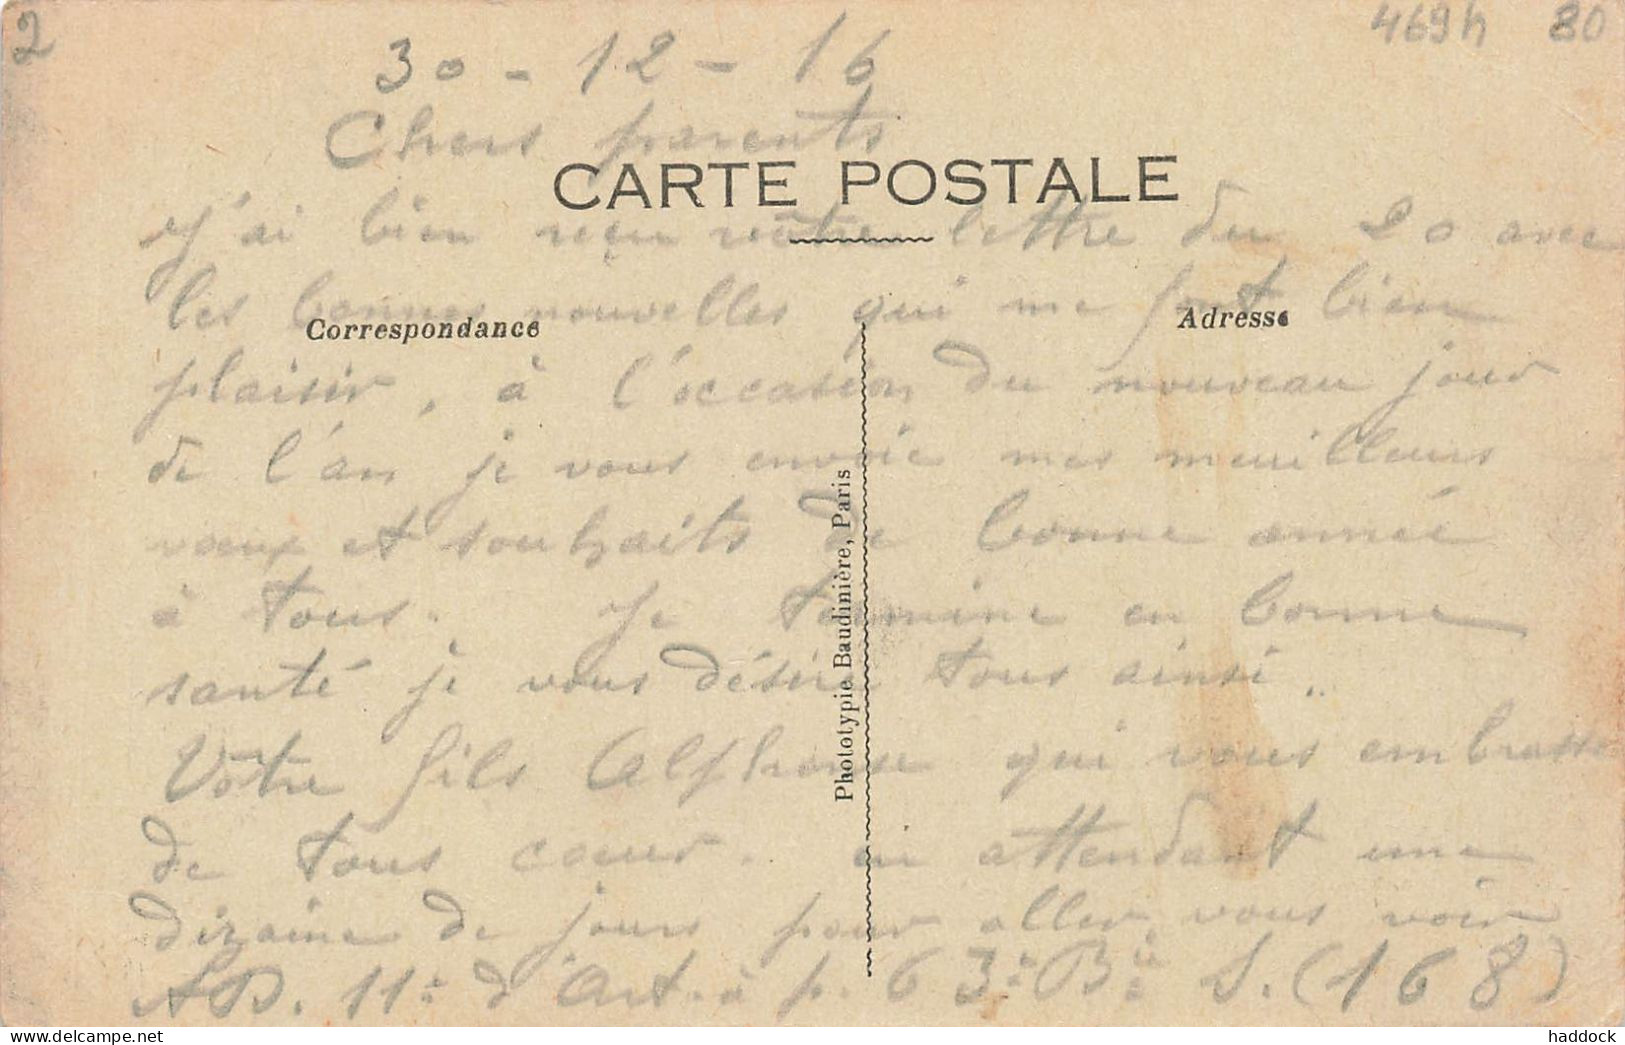 2
469h 80
30 - 12 - 16
Chers parents
CARTE POSTALE
J'ai bien reçu votre lettre du 20 avec
les bonnes nouvelles qui me font bien
Correspondance
Adresse
plaisir, à l'occasion du nouveau jour
de l'an je vous envoie mes meuilleurs
vœux et souhaits de bonne année
à tous. Je termine en bonne
santé je vous désire tous ainsi..
Votre fils Alphonse qui vous embrasse
de tous cœur. en attendant une
dizaine de jours pour aller vous voir
AD. 11e d'Art. à p. 63e Bie S. (168)
Phototypie Baudinière, Paris
haddock